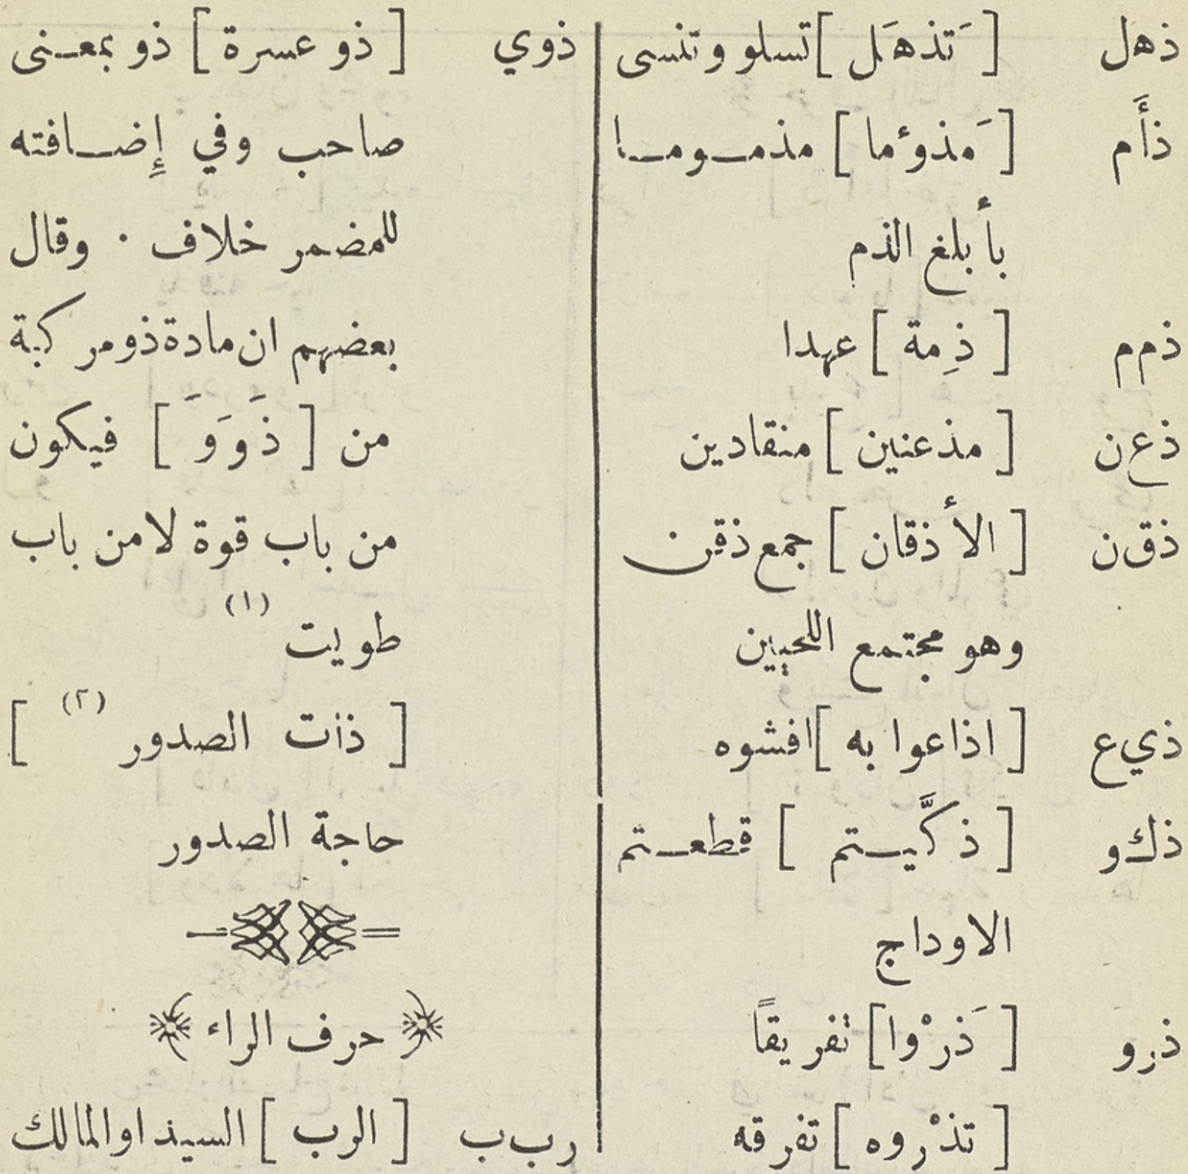 ذهل [ تَذهَل ] تسلو وتنسى
ذأَم [ مَذوءُما ] مذمــومــا
بأَبلغ الذم
ذمم [ ذِمة ] عهدا
ذعن [ مذعنين ] منقادين
ذقن [ الأَذقان ] جمع ذقن
وهو مجتمع اللحيين
ذيع [ اذاعوا به ] افشوه
ذكو [ ذكَّيــتم ] قطعــتم
الاوداج
ذرو [ ذَرْوا ] تفريقاً
[ تذْروه ] تفرقه
ذوي [ ذو عسرة ] ذو بمعــنى
صاحب وفي إِضــافته
للمضمر خلاف . وقال
بعضهم ان مادة ذو مركبة
من [ ذَوَوَ ] فيكون
من باب قوة لا من باب
طويت (١)
[ ذات الصدور (٢) ]
حاجة الصدور
﴿ حرف الراء ﴾
ربب [ الرب ] السيد او المالك